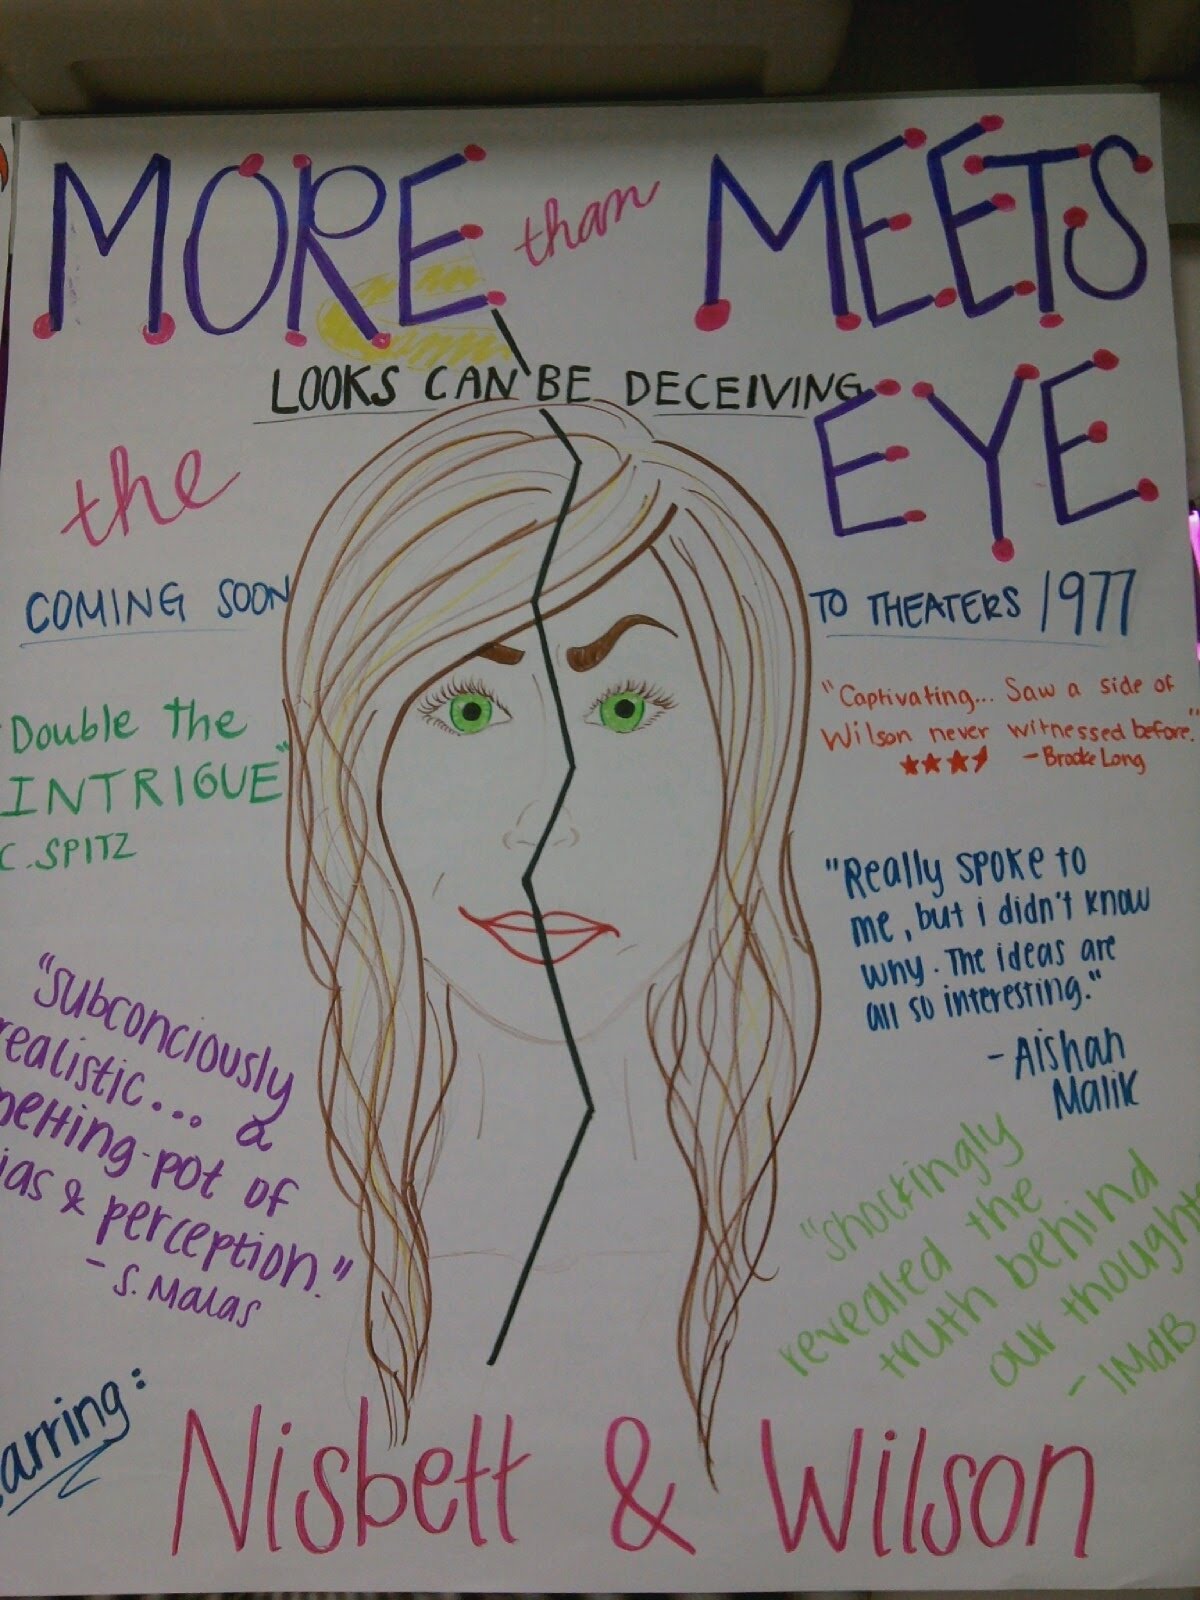 MORE than MEETS
the EYE
LOOKS CAN BE DECEIVING
COMING SOON TO THEATERS 1977
Double the
INTRIGUE"
C. SPITZ
"Captivating... Saw a side of
Wilson never witnessed before."
- Brooke Long
"Really spoke to
me, but i didn't know
why. The ideas are
all so interesting."
- Aishah
Malik
"subconciously
realistic... a
melting-pot of
ias & perception."
- S. Malas
"shockingly
revealed the
truth behind
our thought
- IMdB
arring:
Nisbett & Wilson